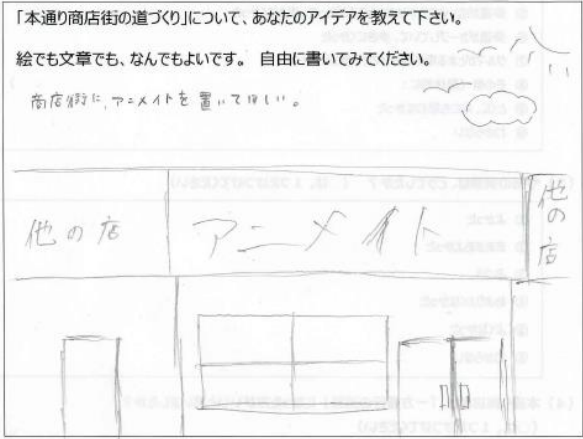 「本通り商店街の道づくり」について、あなたのアイデアを教えて下さい。
絵でも文章でも、なんでもよいです。 自由に書いてみてください。
商店街に、アニメイトを置いてほしい。
他の店
アニメイト
他の店